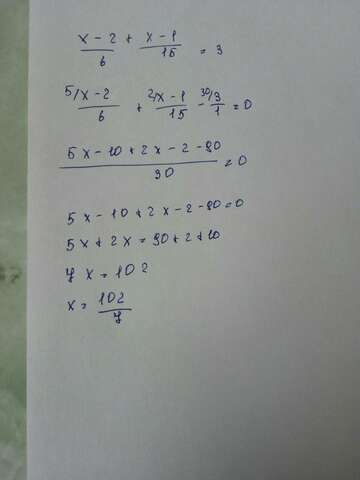 x-2/6 + x-1/15 = 3
5/x-2/6 + 2/x-1/15 - 30/3/1 = 0
5x-10+2x-2-90/30 = 0
5x-10+2x-2-90=0
5x+2x=90+2+10
7x=102
x=102/7